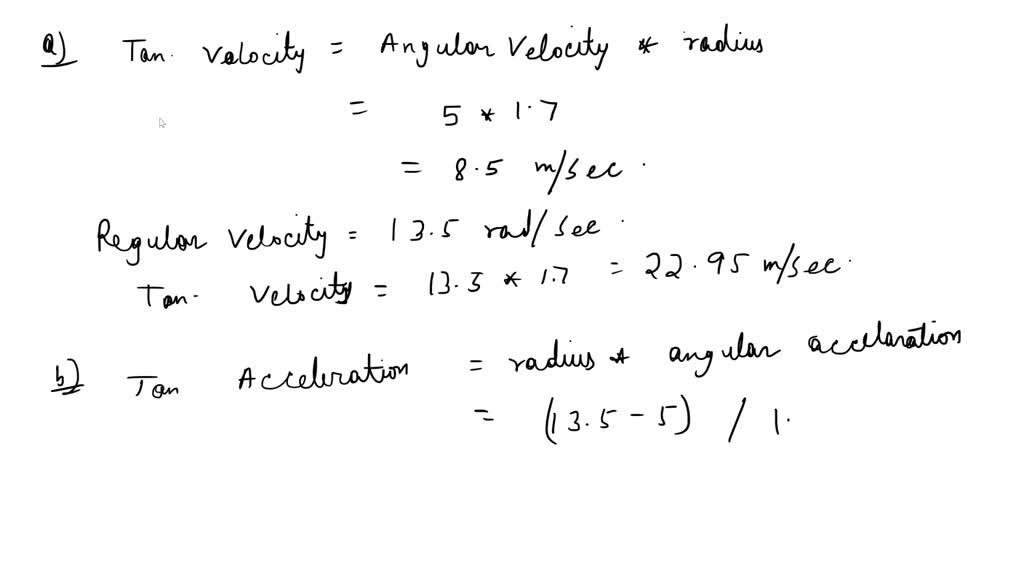 a) Tan. Velocity = Angular Velocity * radius
= 5 * 1.7
= 8.5 m/sec.
Regular Velocity = 13.5 rad/sec.
Tan. Velocity = 13.5 * 1.7 = 22.95 m/sec.
b) Tan Acceleration = radius * angular acceleration
= (13.5 - 5) / 1.